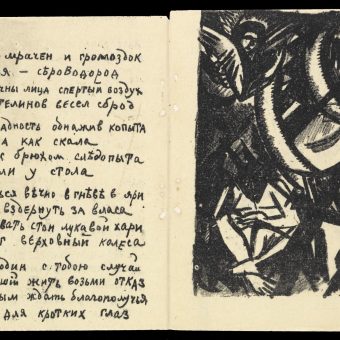 мрачен и громоздок
я — сѣроводород
чны лица спертый воздух
телинов весел сброд
адность обнажив копыта
а как скала
к брюхом слѣдопыта
ли у стола
ься вѣчно в гнѣвѣ в яри
вздернуть за власа
вать стон лукавой хари
г верховный колеса
один с тобою случай
шой жить возьми отказ
ым ждать благополучья
для кротких глаз